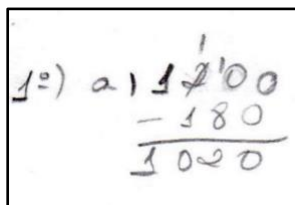 1º) a) 1200
- 180
1020